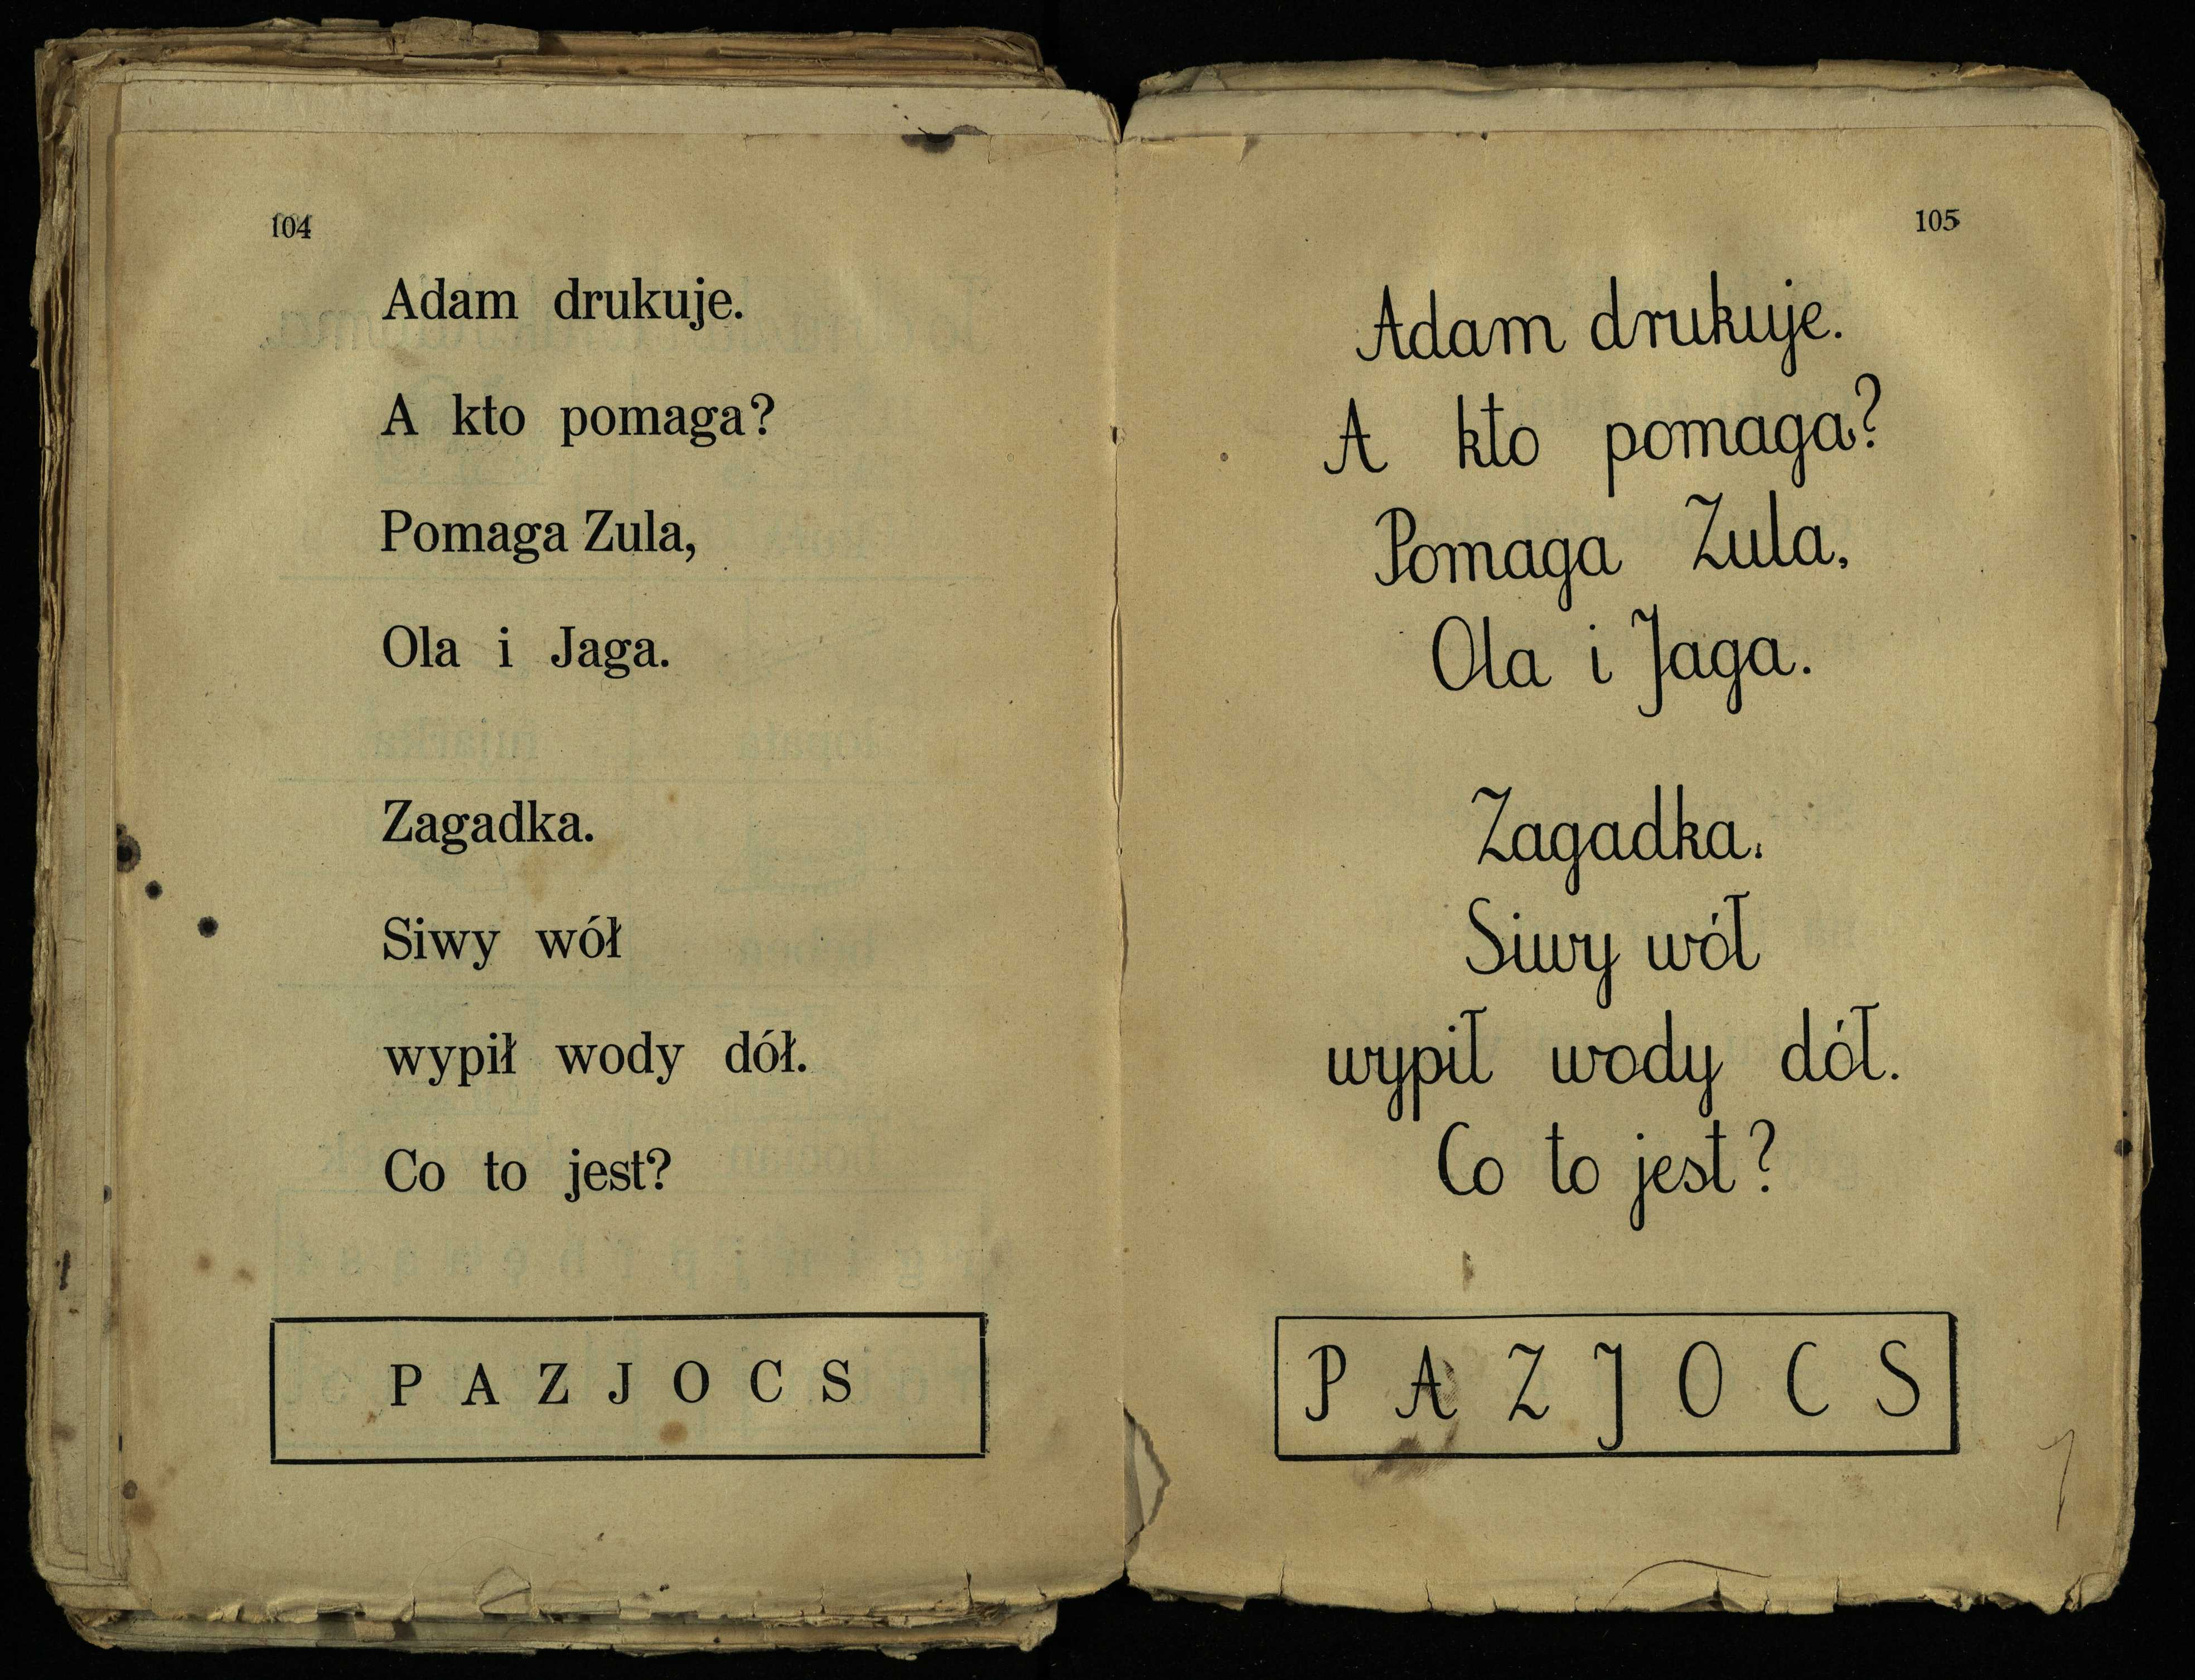 104
Adam drukuje.
A kto pomaga?
Pomaga Zula,
Ola i Jaga.
Zagadka.
Siwy wół
wypił wody dół.
Co to jest?
P A Z J O C S
105
Adam drukuje.
A kto pomaga?
Pomaga Zula,
Ola i Jaga.
Zagadka.
Siwy wół
wypił wody dół.
Co to jest?
P A Z J O C S